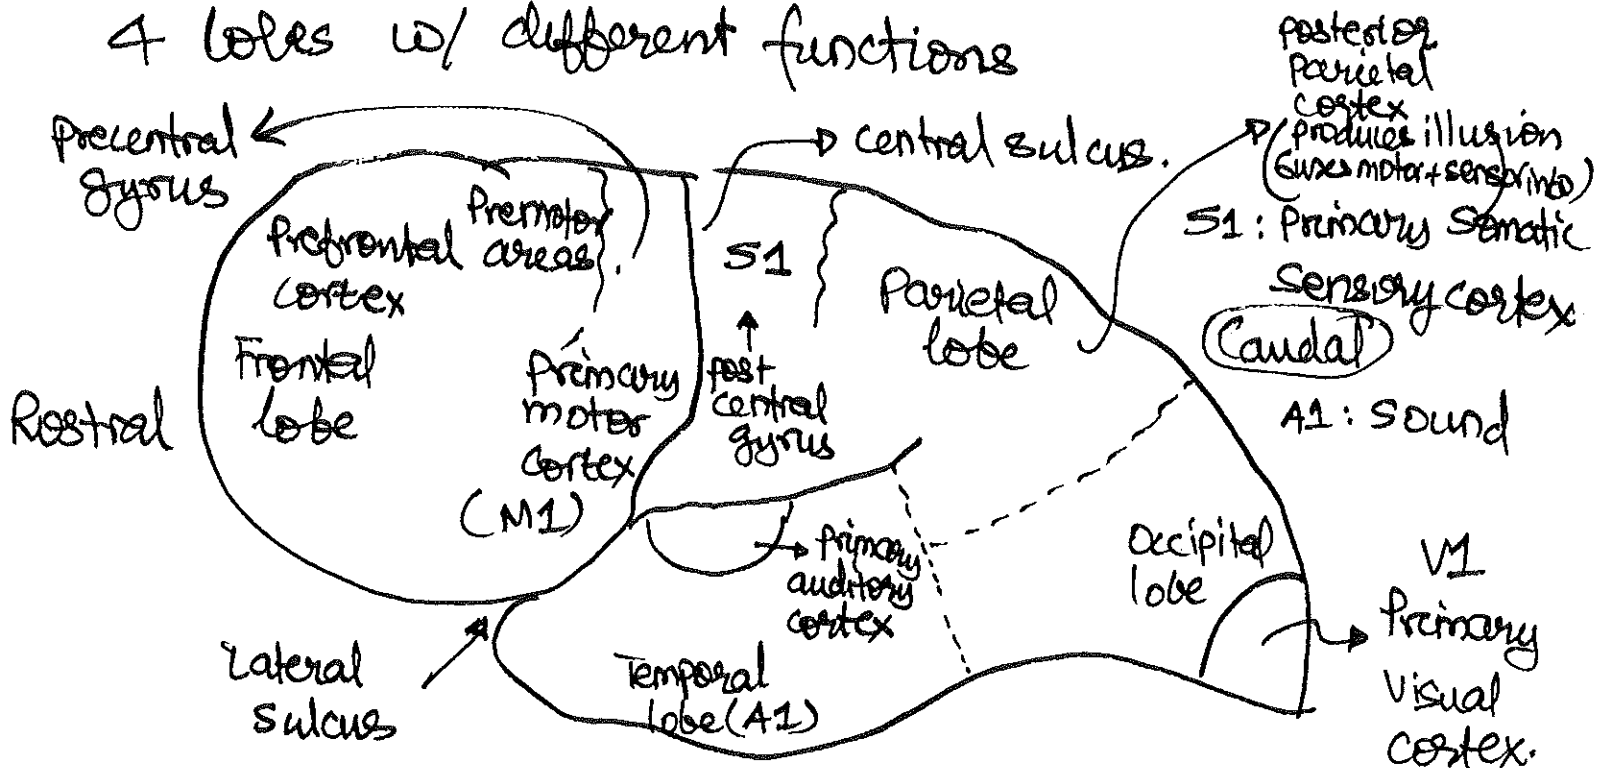 4 lobes w/ different functions
Precentral
gyrus
central sulcus.
posterior
parietal
cortex
(produces illusion
fuses motor + sensor info)
S1: Primary Somatic
Sensory cortex
Caudal
A1: Sound
Prefrontal
cortex
Premotor
areas.
S1
Parietal
lobe
Frontal
lobe
Rostral
Primary
motor
cortex
(M1)
post
central
gyrus
Primary
auditory
cortex
Occipital
lobe
V1
Primary
Visual
cortex.
Lateral
Sulcus
Temporal
lobe (A1)